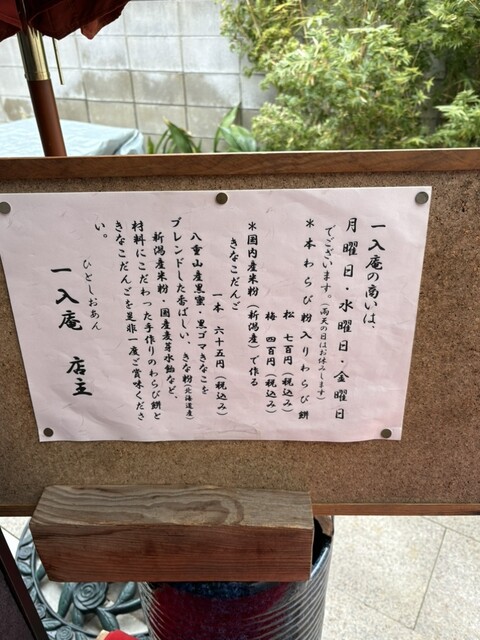 一入庵の商いは、
月曜日・水曜日・金曜日
でございます。(雨天の日はお休みします)
*本わらび粉入りわらび餅
松 七百円(税込み)
梅 四百円(税込み)
*国内産米粉(新潟産)で作る
きなこだんご
一本 六十五円(税込み)
八重山産黒蜜・黒ゴマきなこを
ブレンドした香ばしい、きな粉(北海道産)
新潟産米粉・国産麦芽水飴など、
材料にこだわった手作りのわらび餅と
きなこだんごを是非一度ご賞味くださ
い。
ひとしおあん
一入庵 店主